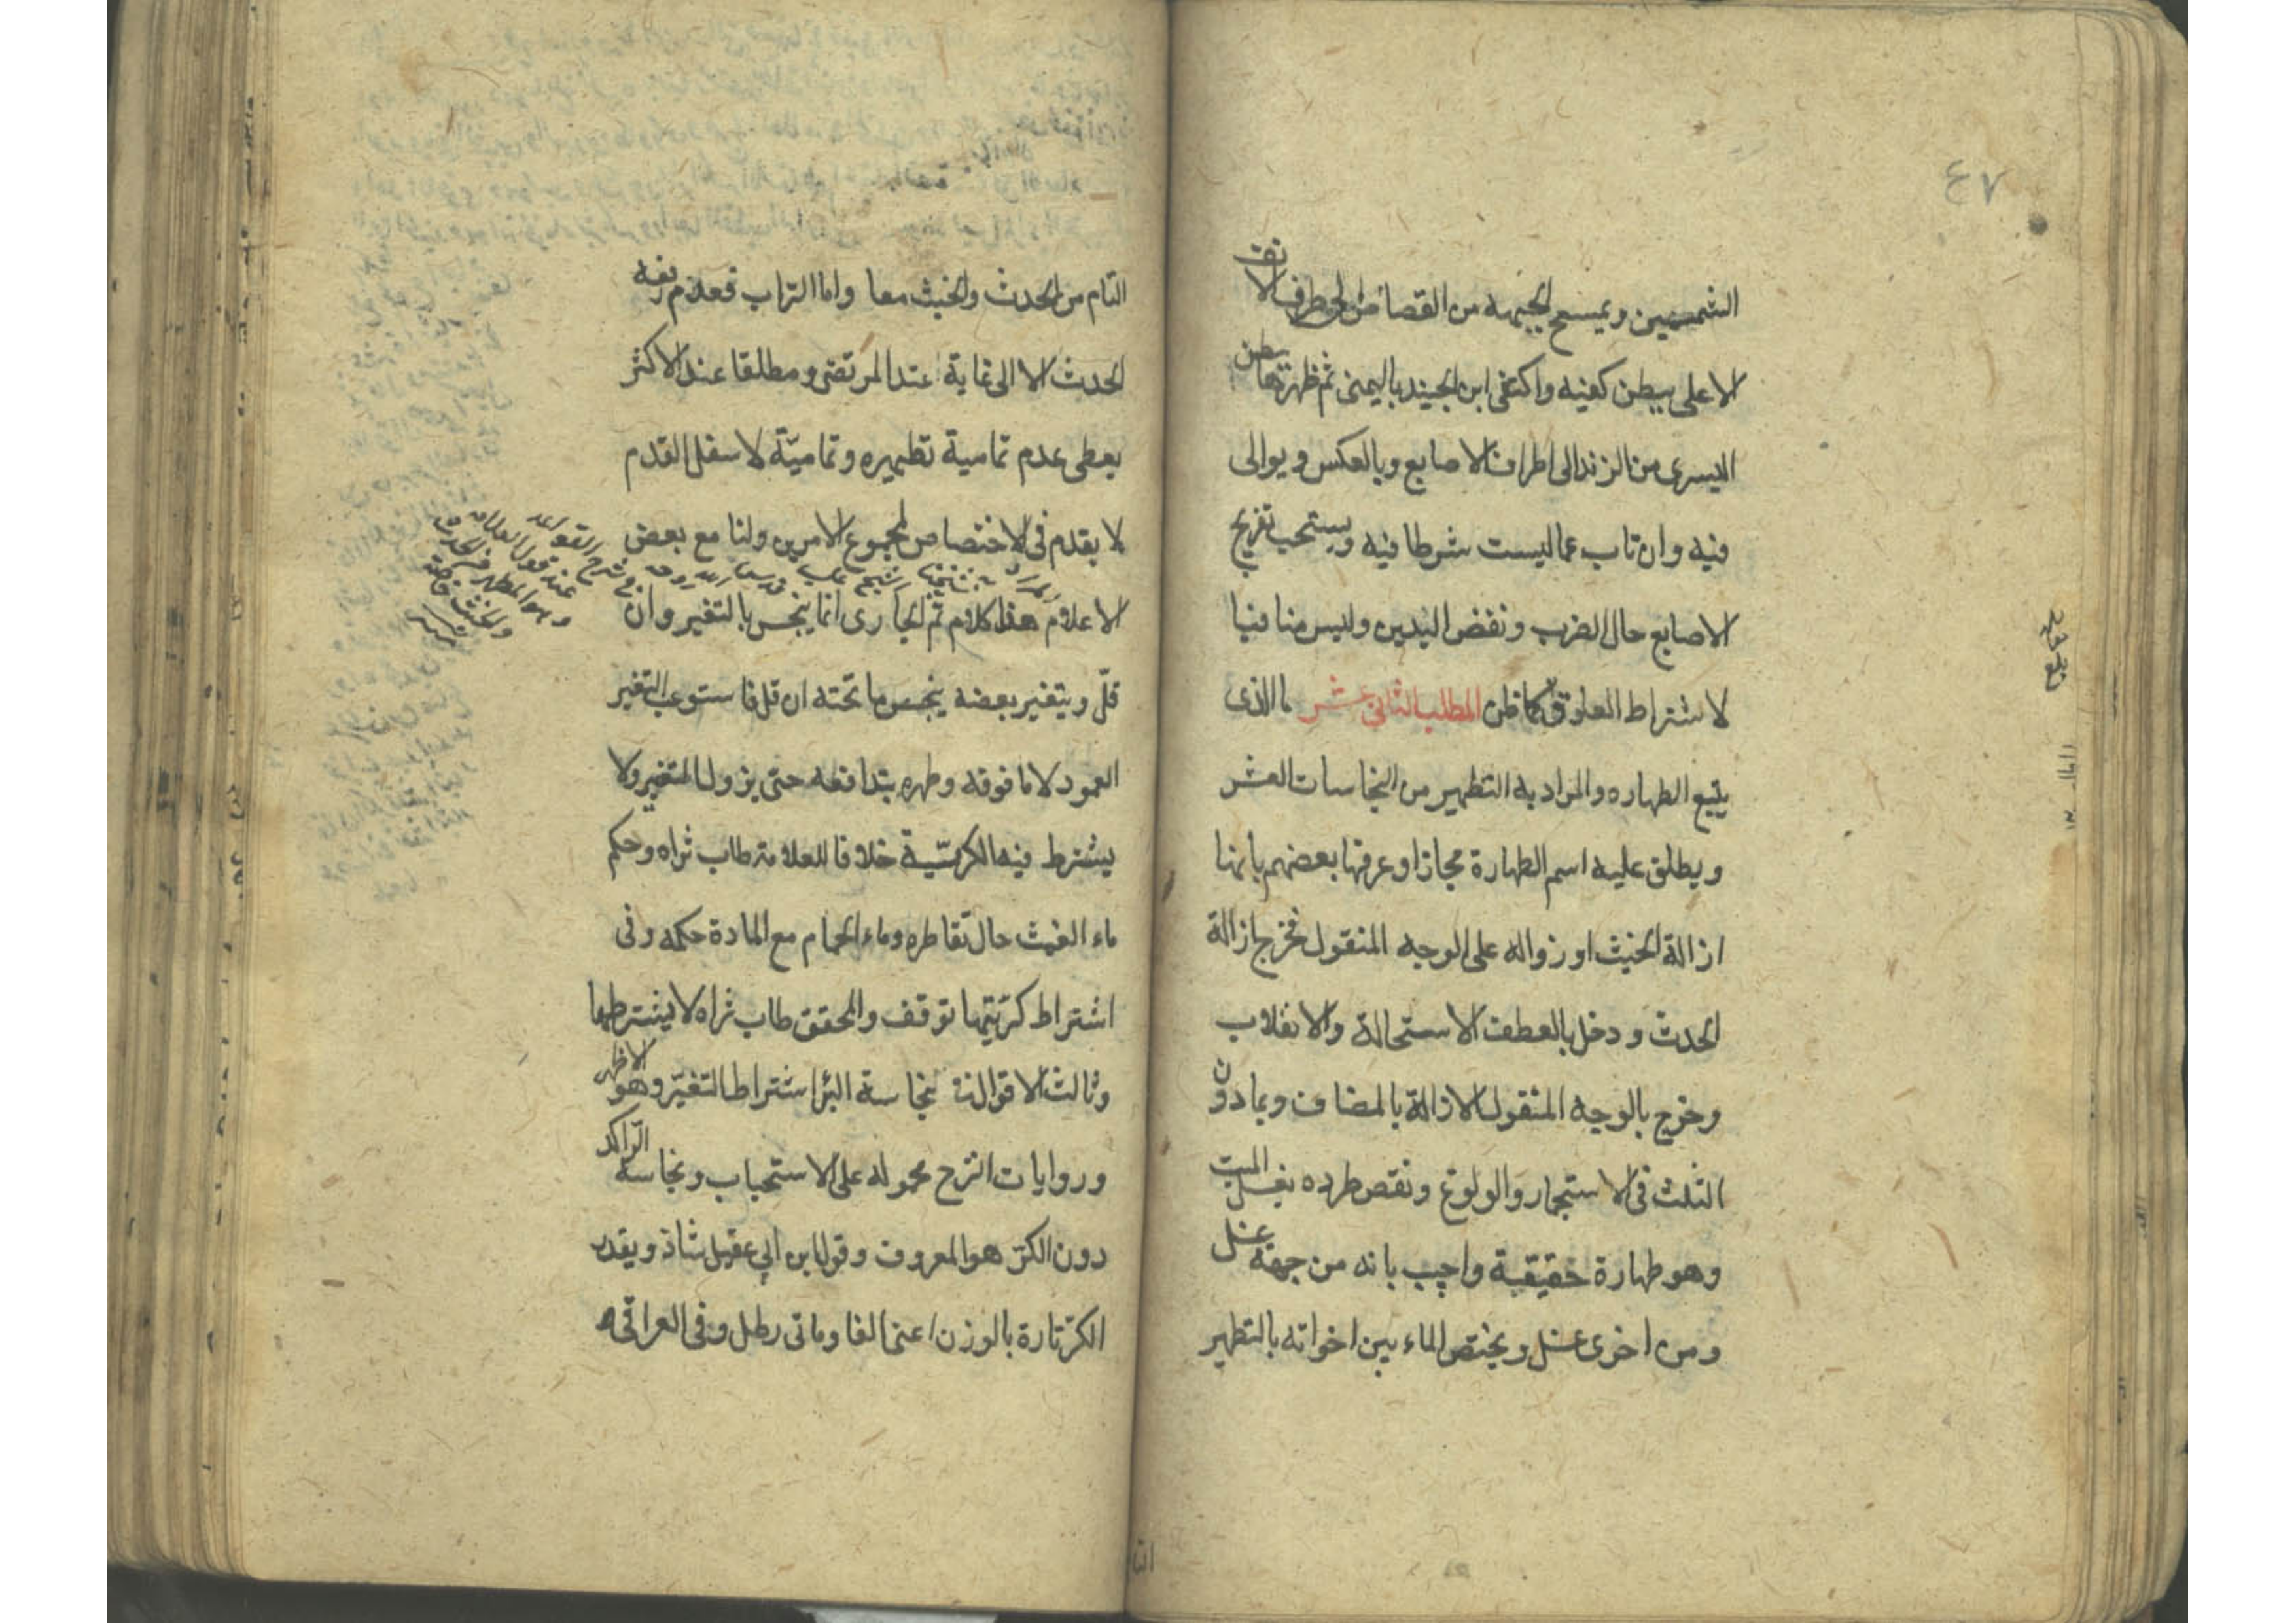 ٤٧
الشمسين ويمسح الجبهه من القصاص الى طرف الانف
الاعلى ببطن كفيه واكتفى ابن الجنيد باليمنى ثم ظهرتها ببطن
اليسرى من الزند الى اطراف الاصابع وبالعكس ويوالى
فيه وان تاب عما ليست شرطا فيه ويستحب تفريج
الاصابع حال الضرب ونفض اليدين وليس منافيا
لاشتراط العلوق كما ظن المطلب الثانى عشر ما الذى
يتبع الطهاره والمراد به التطهير من النجاسات العشر
ويطلق عليه اسم الطهارة مجازا وعرفها بعضهم بانها
ازالة الخبث او زواله على الوجه المنقول فخرج ازالة
الحدث ودخل بالعطف الاستحالة والانقلاب
وخرج بالوجه المنقول الازالة بالمضاف وبما دون
الثلث فى الاستجمار والولوغ ونقص طرده بغسل الميت
وهو طهارة حقيقية واجيب بانه من جهة غسل
ومن اخرى غسل ويختص الماء بين اخواته بالتطهير
بلغ مقابله
التا
التام من الحدث والخبث معا واما التراب فعدم رفعه
الحدث الا الى غاية عند المرتضى ومطلقا عند الاكثر
يعطى عدم تمامية تطهيره وتماميّة لاسفل القدم
لا يقدم فى الاختصاص لمجموع الامرين ولنا مع بعض
الاعلام هذا كلام ثم الجارى انما ينجس بالتغير وان
قلّ ويتغير بعضه ينجس ما تحته ان قل فاستوعب التغير
العمود لا ما فوقه وطهره بتدافعه حتى يزول المتغير ولا
يشترط فيه الكريّة خلافا للعلامة طاب ثراه وحكم
ماء الغيث حال تقاطره وماء الحمام مع المادة حكمه وفى
اشتراط كريّتها توقف والمحقق طاب ثراه لا يشترطها
وثالث الاقوال فى نجاسة البئر اشتراط التغيّر وهو الاظهر
وروايات النزح محموله على الاستحباب ونجاسة الرّاكد
دون الكرّ هو المعروف وقول ابن ابي عقيل شاذ ويقدر
الكرّ تارة بالوزن اعنى الفا وماتى رطل وفى العراقى
فى شرح القواعد
عند قول العلامة
وهو المطهر من الحدث
والخبث خاصة